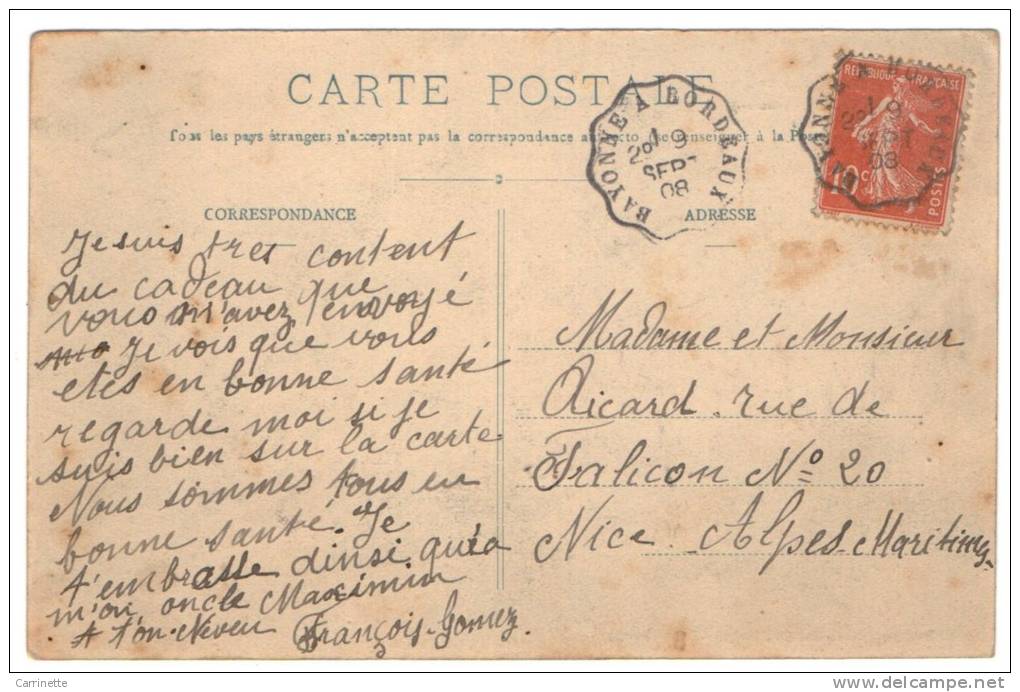 CARTE POSTALE
Tous les pays étrangers n'acceptent pas la correspondance au recto (se renseigner à la Poste
CORRESPONDANCE
ADRESSE
BAYONNE A BORDEAUX
2º 19
SEPT
08
REPUBLIQUE FRANÇAISE
10 c
POSTES
Je suis tres content
du cadeau que
vous m'avez envoyé
Je vois que vous
etes en bonne santé
regarde moi si je
suis bien sur la carte
Nous sommes tous en
bonne santé. Je
t'embrasse dinsi qu'a
m'on oncle Maximin
t'on Neveu François Gomez
Madame et Monsieur
Ricard. rue de
Falicon Nº 20
Nice Alpes-Maritimes-
Carrinette
www.delcampe.net